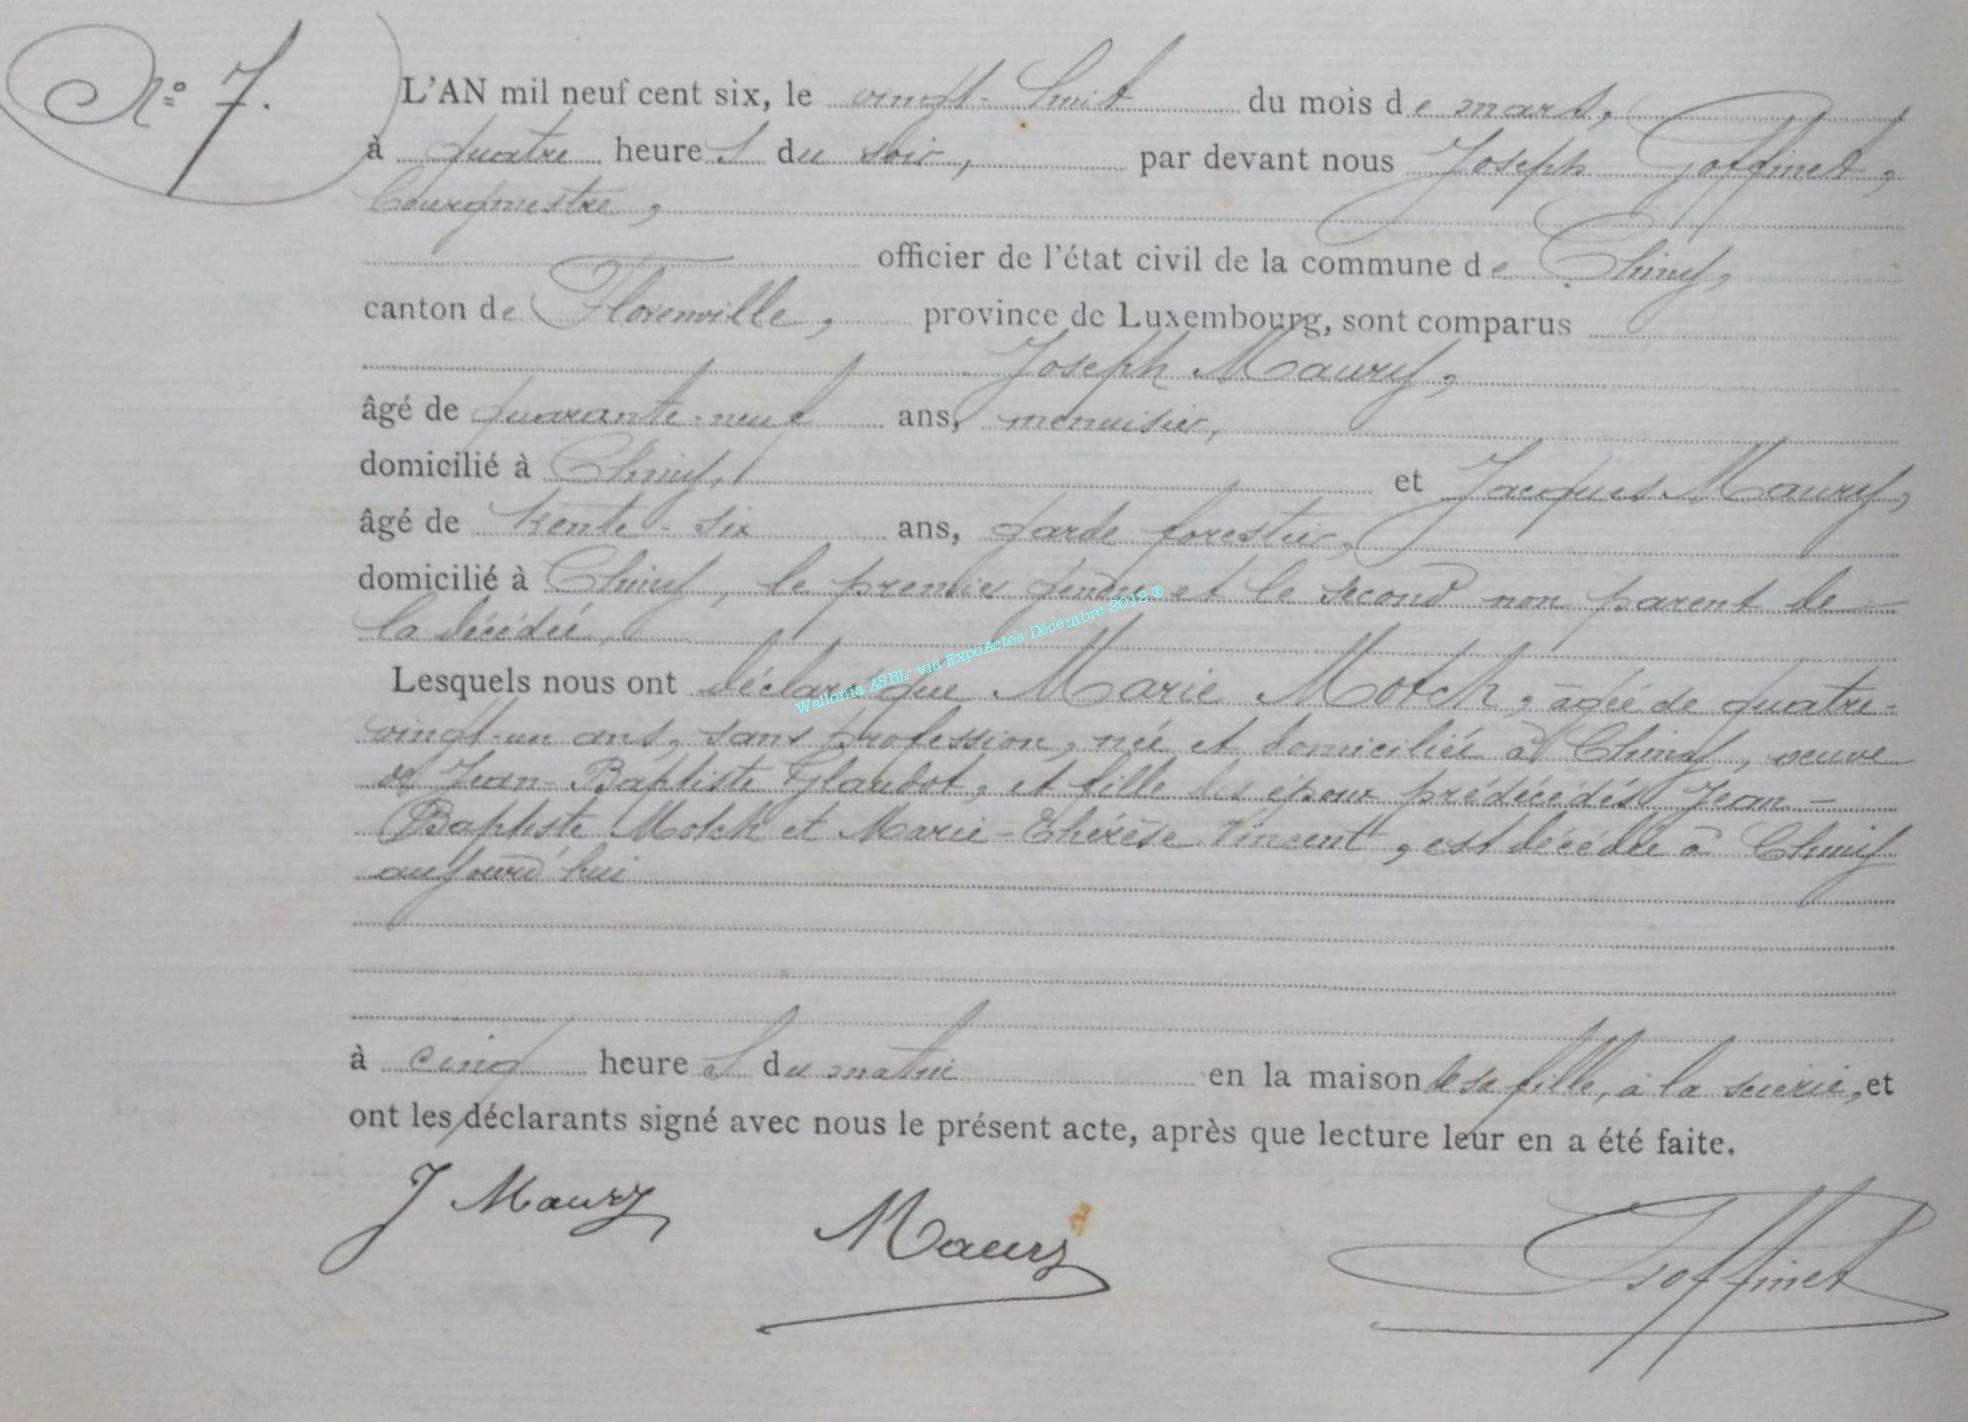 N° 7.
L'AN mil neuf cent six, le vingt-huit du mois de mars,
à quatre heures du soir, par devant nous Joseph Goffinet,
bourgmestre,
officier de l'état civil de la commune de Chiny,
canton de Florenville, province de Luxembourg, sont comparus
Joseph Maury,
âgé de quarante-neuf ans, menuisier,
domicilié à Chiny, et Jacques Maury,
âgé de trente-six ans, garde forestier,
domicilié à Chiny, le premier gendre et le second non parent de
la décédée,
Lesquels nous ont déclaré que Marie Motch, âgée de quatre-
vingt-un ans, sans profession, née et domiciliée à Chiny, veuve
de Jean-Baptiste Glaudot, et fille des époux prédécédés Jean-
Baptiste Motch et Marie-Thérèse Vincent, est décédée à Chiny
aujourd'hui
à cinq heures du matin en la maison de sa fille, à la scierie, et
ont les déclarants signé avec nous le présent acte, après que lecture leur en a été faite.
J Maury Maury Goffinet
Wallonia ASBL via ExpoActes-Décembre 2012 ®